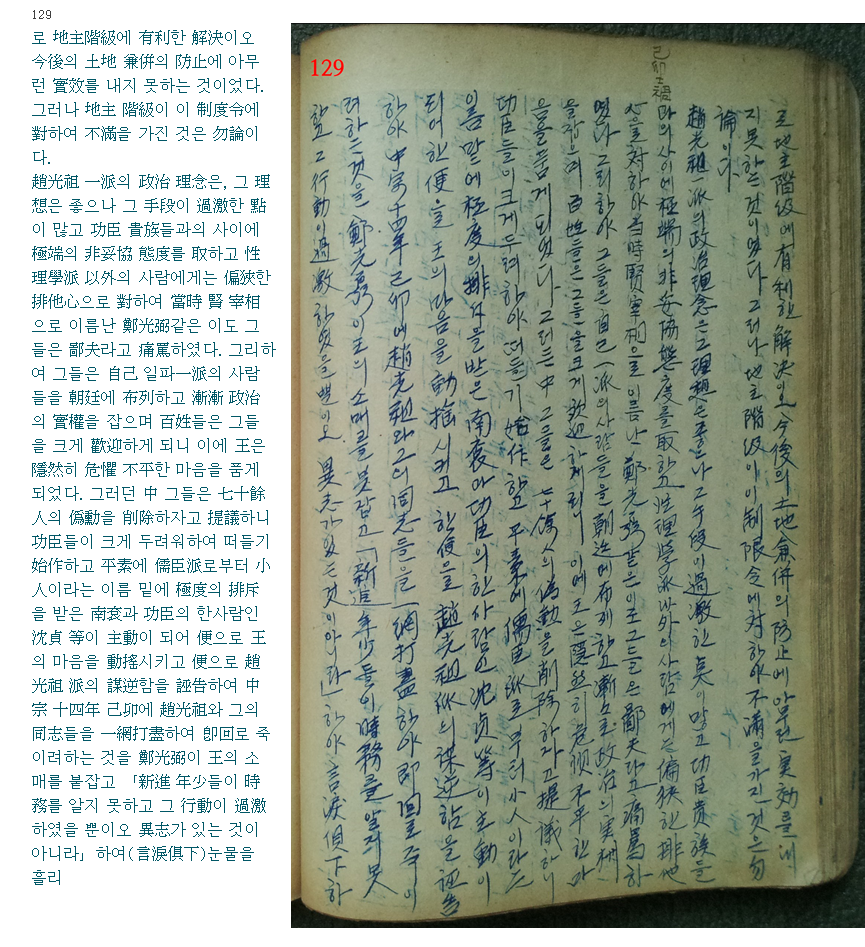 129
로 地主階級에 有利한 解決이오
今後의 土地 兼倂의 防止에 아무
런 實效를 내지 못하는 것이었다.
그러나 地主 階級이 이 制度令에
對하여 不滿을 가진 것은 勿論이
다.
趙光祖 一派의 政治 理念은, 그 理
想은 좋으나 그 手段이 過激한 點
이 많고 功臣 貴族들과의 사이에
極端의 非妥協 態度를 取하고 性
理學派 以外의 사람에게는 偏狹한
排他心으로 對하여 當時 賢 宰相
으로 이름난 鄭光弼같은 이도 그
들은 鄙夫라고 痛罵하였다. 그리하
여 그들은 自己 일파一派의 사람
들을 朝廷에 布列하고 漸漸 政治
의 實權을 잡으며 百姓들은 그들
을 크게 歡迎하게 되니 이에 王은
隱然히 危懼 不平한 마음을 품게
되었다. 그러던 中 그들은 七十餘
人의 僞勳을 削除하자고 提議하니
功臣들이 크게 두려워하여 떠들기
始作하고 平素에 儒臣派로부터 小
人이라는 이름 밑에 極度의 排斥
을 받은 南袞과 功臣의 한사람인
沈貞 等이 主動이 되어 便으로 王
의 마음을 動搖시키고 便으로 趙
光祖 派의 謀逆함을 誣告하여 中
宗 十四年 己卯에 趙光祖와 그의
同志들을 一網打盡하여 卽回로 죽
이려하는 것을 鄭光弼이 王의 소
매를 붙잡고 「新進 年少들이 時
務를 알지 못하고 그 行動이 過激
하였을 뿐이오 異志가 있는 것이
아니라」 하여(言淚俱下)눈물을
흘리
129
己卯士禍
로 地主階級에 有利한 解決이오 今後의 土地 兼倂의 防止에 아무런 実効를 내
지 못하는 것이었다 그러나 地主階級이 이 制限令에 対하야 不滿을 가진 것은 勿
論이다.
趙光祖 一派의 政治理念은 그 理想은 좋으나 그 手段이 過激한 点이 많고 功臣貴族들
과의 사이에 極端의 非妥協態度를 取하고 性理學派 以外의 사람에게는 偏狹한 排他
心을 対하야 当時 賢宰相으로 이름난 鄭光弼같은 이도 그들은 鄙夫라고 痛罵하
였다 그리하야 그들은 自己 一派의 사람들을 朝廷에 布列하고 漸漸 政治의 実権
을 잡으며 百姓들은 그들을 크게 歡迎하게 되니 이에 王은 隱然히 危惧 不平한 마
음을 품게 되었다 그러든 中 그들은 七十餘人의 僞勳을 削除하자고 提議하니
功臣들이 크게 두려하야 떠들기 始作하고 平素에 儒臣派로부터 小人이라는
이름 밑에 極度의 排斥을 받은 南袞과 功臣의 한사람인 沈貞等이 主動이
되어 한便으로 王의 마음을 動搖시키고 한便으로 趙光祖派의 謀逆함을 誣告
하야 中宗 十四年 己卯에 趙光祖와 그의 同志들을 一網打盡하야 即回로 죽이
려 하는 것을 鄭光弼이 王의 소매를 붙잡고 「新進年少들이 時務를 알지 못
하고 그 行動이 過激하였을 뿐이오 異志가 있는 것이 아니라」 하야 言淚俱下하